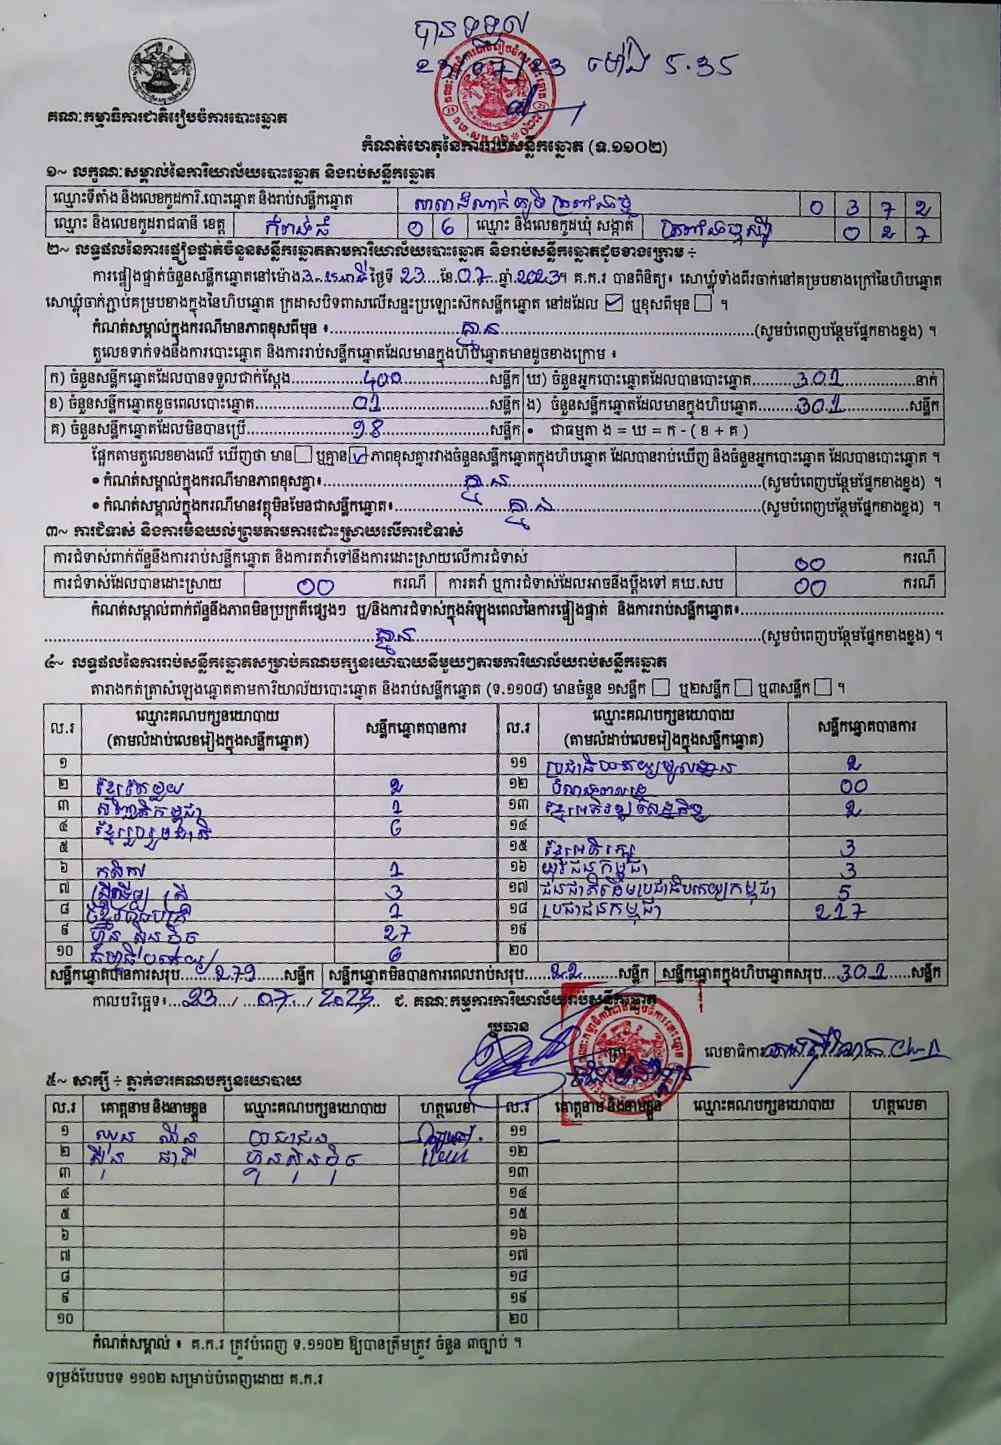 បានទទួល
23/07/23 ម៉ោង 5.35
គណៈកម្មាធិការជាតិរៀបចំការបោះឆ្នោត
កំណត់ហេតុនៃការរាប់សន្លឹកឆ្នោត (ទ.១១០២)
១~ លក្ខណៈសម្គាល់នៃការិយាល័យបោះឆ្នោត និងរាប់សន្លឹកឆ្នោត
ឈ្មោះទីតាំង និងលេខកូដការិ.បោះឆ្នោត និងរាប់សន្លឹកឆ្នោត 0 3 7 2
ឈ្មោះ និងលេខកូដរាជធានី ខេត្ត កំពង់ធំ 0 6 ឈ្មោះ និងលេខកូដឃុំ សង្កាត់ 0 2 7
២~ លទ្ធផលនៃការផ្ទៀងផ្ទាត់ចំនួនសន្លឹកឆ្នោតតាមការិយាល័យបោះឆ្នោត និងរាប់សន្លឹកឆ្នោតដូចខាងក្រោម ÷
ការផ្ទៀងផ្ទាត់ចំនួនសន្លឹកឆ្នោតនៅម៉ោង ថ្ងៃទី 23 ខែ 07 ឆ្នាំ 2023។ គ.ក.រ បានពិនិត្យ៖ សោឃ្លុំទាំងពីរចាក់នៅគម្របខាងក្រៅនៃហិបឆ្នោត
សោឃ្លុំចាក់ភ្ជាប់គម្របខាងក្នុងនៃហិបឆ្នោត ក្រដាសបិទពាសលើសន្ទះប្រឡោះស៊កសន្លឹកឆ្នោត នៅដដែល ☑ ឬខុសពីមុន ☐ ។
កំណត់សម្គាល់ក្នុងករណីមានភាពខុសពីមុន ៖ គ្មាន (សូមបំពេញបន្ថែមផ្នែកខាងខ្នង) ។
តួលេខទាក់ទងនឹងការបោះឆ្នោត និងការរាប់សន្លឹកឆ្នោតដែលមានក្នុងហិបឆ្នោតមានដូចខាងក្រោម ៖
ក) ចំនួនសន្លឹកឆ្នោតដែលបានទទួលជាក់ស្ដែង 400 សន្លឹក ឃ) ចំនួនអ្នកបោះឆ្នោតដែលបានបោះឆ្នោត 301 នាក់
ខ) ចំនួនសន្លឹកឆ្នោតខូចពេលបោះឆ្នោត 01 សន្លឹក ង) ចំនួនសន្លឹកឆ្នោតដែលមានក្នុងហិបឆ្នោត 301 សន្លឹក
គ) ចំនួនសន្លឹកឆ្នោតដែលមិនបានប្រើ 98 សន្លឹក • ជាធម្មតា ង = ឃ = ក - ( ខ + គ )
ផ្អែកតាមតួលេខខាងលើ ឃើញថា មាន ☐ ឬគ្មាន ☑ ភាពខុសគ្នារវាងចំនួនសន្លឹកឆ្នោតក្នុងហិបឆ្នោត ដែលបានរាប់ឃើញ និងចំនួនអ្នកបោះឆ្នោត ដែលបានបោះឆ្នោត ។
• កំណត់សម្គាល់ក្នុងករណីមានភាពខុសគ្នា៖ គ្មាន (សូមបំពេញបន្ថែមផ្នែកខាងខ្នង) ។
• កំណត់សម្គាល់ក្នុងករណីមានវត្ថុមិនមែនជាសន្លឹកឆ្នោត៖ គ្មាន (សូមបំពេញបន្ថែមផ្នែកខាងខ្នង) ។
៣~ ការជំទាស់ និងការមិនយល់ព្រមតាមការដោះស្រាយលើការជំទាស់
ការជំទាស់ពាក់ព័ន្ធនឹងការរាប់សន្លឹកឆ្នោត និងការតវ៉ាទៅនឹងការដោះស្រាយលើការជំទាស់ 00 ករណី
ការជំទាស់ដែលបានដោះស្រាយ 00 ករណី ការតវ៉ា ឬការជំទាស់ដែលអាចនឹងប្ដឹងទៅ គឃ.សប 00 ករណី
កំណត់សម្គាល់ពាក់ព័ន្ធនឹងភាពមិនប្រក្រតីផ្សេងៗ ឬ/និងការជំទាស់ក្នុងអំឡុងពេលនៃការផ្ទៀងផ្ទាត់ និងការរាប់សន្លឹកឆ្នោត៖
គ្មាន (សូមបំពេញបន្ថែមផ្នែកខាងខ្នង) ។
៤~ លទ្ធផលនៃការរាប់សន្លឹកឆ្នោតសម្រាប់គណបក្សនយោបាយនីមួយៗតាមការិយាល័យរាប់សន្លឹកឆ្នោត
តារាងកត់ត្រាសំឡេងឆ្នោតតាមការិយាល័យបោះឆ្នោត និងរាប់សន្លឹកឆ្នោត (ទ.១១០៨) មានចំនួន ១សន្លឹក ☐ ឬ២សន្លឹក ☐ ឬ៣សន្លឹក ☐ ។
ល.រ ឈ្មោះគណបក្សនយោបាយ (តាមលំដាប់លេខរៀងក្នុងសន្លឹកឆ្នោត) សន្លឹកឆ្នោតបានការ ល.រ ឈ្មោះគណបក្សនយោបាយ (តាមលំដាប់លេខរៀងក្នុងសន្លឹកឆ្នោត) សន្លឹកឆ្នោតបានការ
១ ១១ ប្រជាធិបតេយ្យមូលដ្ឋាន 2
២ ខ្មែរតែមួយ 2 ១២ 00
៣ សញ្ជាតិកម្ពុជា 1 ១៣ ខ្មែរអភិវឌ្ឍន៍សេដ្ឋកិច្ច 2
៤ ខ្មែររួបរួមជាតិ 6 ១៤
៥ ១៥ ខ្មែរអភិរក្ស 3
៦ កសិករ 1 ១៦ យុវជនកម្ពុជា 3
៧ 3 ១៧ ជនជាតិដើមប្រជាធិបតេយ្យកម្ពុជា 5
៨ 1 ១៨ ប្រជាជនកម្ពុជា 217
៩ ហ៊្វុនស៊ិនប៉ិច 27 ១៩
១០ ធម្មាធិបតេយ្យ 6 ២០
សន្លឹកឆ្នោតបានការសរុប 279 សន្លឹក សន្លឹកឆ្នោតមិនបានការពេលរាប់សរុប 22 សន្លឹក សន្លឹកឆ្នោតក្នុងហិបឆ្នោតសរុប 301 សន្លឹក
កាលបរិច្ឆេទ៖ 23 / 07 / 2023 ជ. គណៈកម្មការការិយាល័យរាប់សន្លឹកឆ្នោត
ប្រធាន
លេខាធិការ
៥~ សាក្សី ÷ ភ្នាក់ងារគណបក្សនយោបាយ
ល.រ គោត្តនាម និងនាមខ្លួន ឈ្មោះគណបក្សនយោបាយ ហត្ថលេខា ល.រ គោត្តនាម និងនាមខ្លួន ឈ្មោះគណបក្សនយោបាយ ហត្ថលេខា
១ ប្រជាជន ១១
២ ហ៊្វុនស៊ិនប៉ិច ១២
៣ ១៣
៤ ១៤
៥ ១៥
៦ ១៦
៧ ១៧
៨ ១៨
៩ ១៩
១០ ២០
កំណត់សម្គាល់ ៖ គ.ក.រ ត្រូវបំពេញ ទ.១១០២ ឱ្យបានត្រឹមត្រូវ ចំនួន ៣ច្បាប់ ។
ទម្រង់បែបបទ ១១០២ សម្រាប់បំពេញដោយ គ.ក.រ